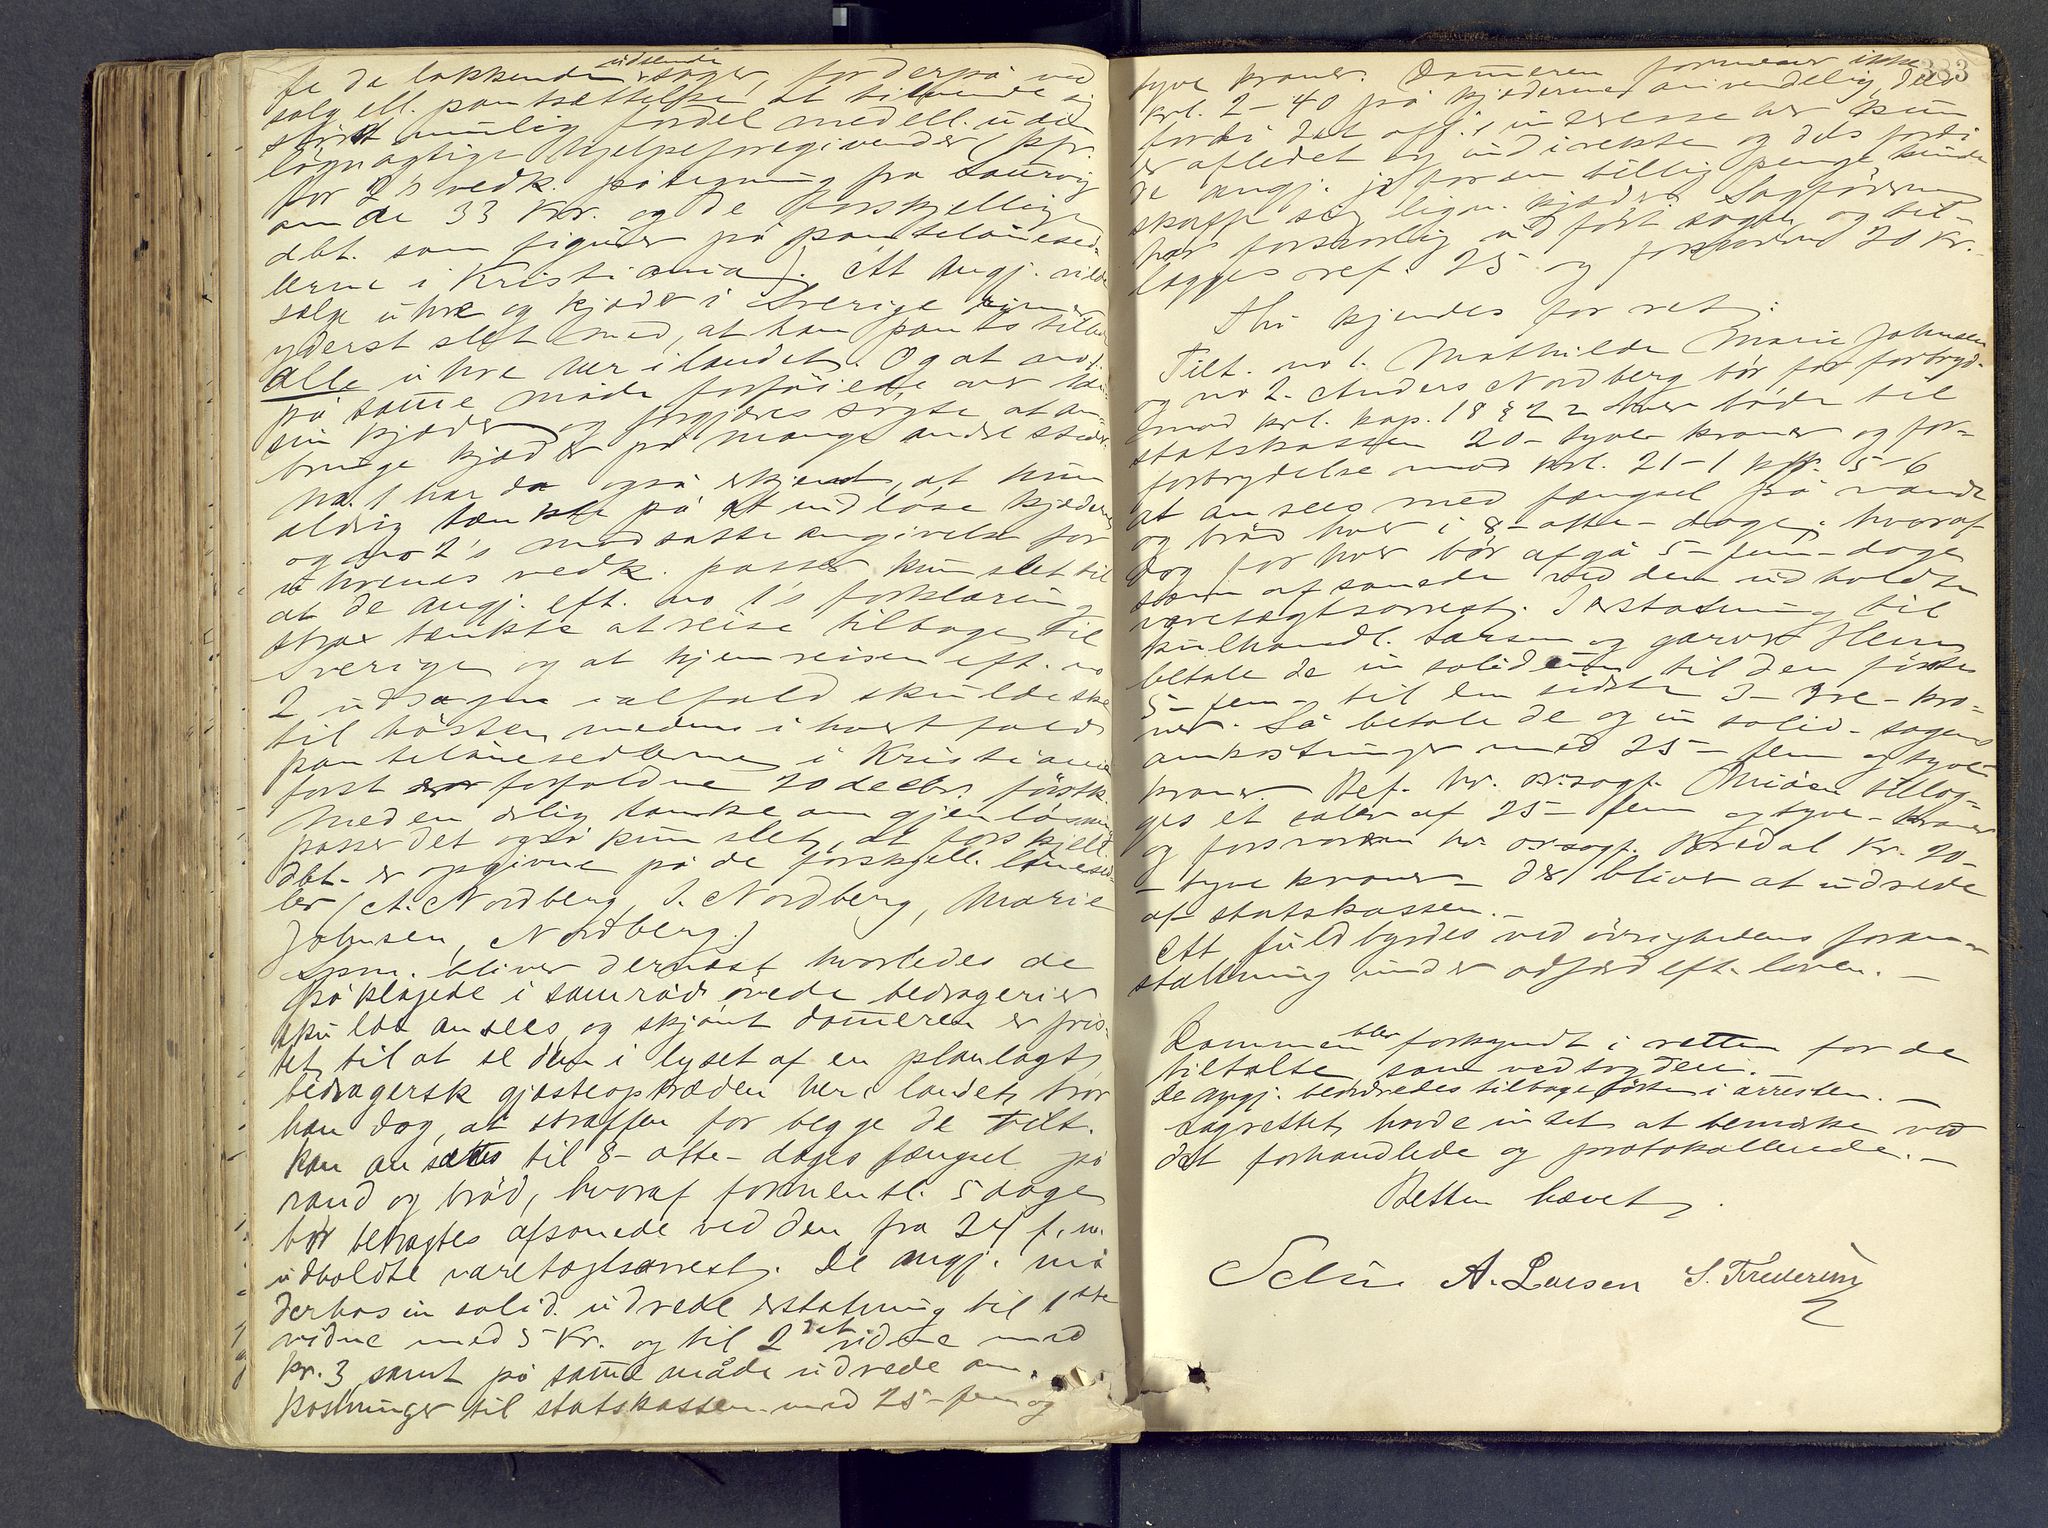 fe de lokkende udseende sager, for derpå ved
salg ell. pantsættelse at tilvende sig
størst mulig fordel med ell. uden
løgnagtige hjelpeforegivender (kfr.
for 2's vedk. påtegning fra Saurvig
om de 33 kr. og de forskjellige
dbt. som figurer på pantelånesed-
lerne i Kristiania). At angj. vilde
salg uhre og kjæder i Sverige rimer
yderst slet med, at han pants
alle uhre her i landet. Og at no 1
på samme måde forføiede over
sin kjæder og forgjæves søgte at an-
bringe kjæder på mange andre steder.
No. 1 har da også erkjendt, at hun
aldrig tænkte på at indløse kjæderne
og no 2's modsatte angivelse for
uhrenes vedk. passer kun slet til
at de angj. eft. no 1's forklaring
strax tænkte at reise tilbage til
Sverige og at hjemreisen eft. no
2 udsagn ialfald skulde ske
til høsten medens i hvert fald
pantelånesedlerne i Kristiania
først forfaldne 20 decbr.
Med en ærlig tanke om gjenløsning
passer det også kun slet, at forskjell.
dbt. er opgivne på de forskjell. lånesed-
ler (A. Nordberg, J. Nordberg, Marie
Johnsen, Nordberg.)
Spm. bliver dernæst hvorledes de
påklagede i samråd øvede bedragerier
skulde ansees og skjønt dommeren er fris-
tet til at se dem i lyset af en planlagt
bedragersk gjesteoptræden her i landet, tror
han dog, at straffen for begge de tilt.
kan ansættes til 8 – otte – dages fængsel på
vand og brød, hvoraf formentl. 5 dage
bør betragtes afsonede ved den fra 24 f. m.
udholdte varetægtsarrest. De angj. må
derhos in solid. udrede erstatning til 1ste
vidne med 5 kr. og til 2det vidne med
kr. 3 samt på samme måde udrede om-
kostninger til statskassen med 25 – fem og
383
tyve kroner. Dommeren formener ikke
krl. 2 – 40 på kjæderne anvendelig, dels
fordi det off. interesse her kun
er afledet og indirekte og dels fordi
de angj. jo for en billig penge kunde
skaffe sig lign. kjæder. Sagføreren
har forsvarlig udført sagen og til-
lægges ref. 25 og forsvareren 20 kr.
Thi kjendes for ret:
Tilt. no 1. Mathilde Marie Johnsen
og no 2. Anders Nordberg bør for forbryd-
mod krl. kap. 18 § 22 hver bøde til
statskassen 20 – tyve kroner og for-
forbrydelse mod krl. 21 – 1 kfr. 5 – 6
at ansees med fængsel på vand
og brød hver i 8 – otte – dage, hvoraf
dog for hver bør afgå 5 – fem – dage
som afsonede ved den udholdte
varetægtsarrest. I erstatning til
kulhandl. Larsen og garver Hem
betale de in solidum til den første
5 – fem – til den sidste 3 – tre – kro-
ner. Så betale de og in solid. sagens
omkostninger med 25 – fem og tyve
kroner. Ref. hr. o.r.sagf. Mjøen tillæg-
ges et salær af 25 – fem og tyve – kroner
og forsvareren hr. o.r.sagf. Bredal kr. 20 –
– tyve kroner – der bliver at udrede
af statskassen. –
At fuldbyrdes ved øvrighedens foran-
staltning under adfærd eft. loven. –
Dommen blev forkyndt i retten for de
tiltalte, som vedtog den. –
De angj. beordredes tilbageførte i arresten. –
Lagrettet havde intet at bemærke ved
det forhandlede og protokollerede. –
Retten hævet.
A. Larsen S. Frederiksen